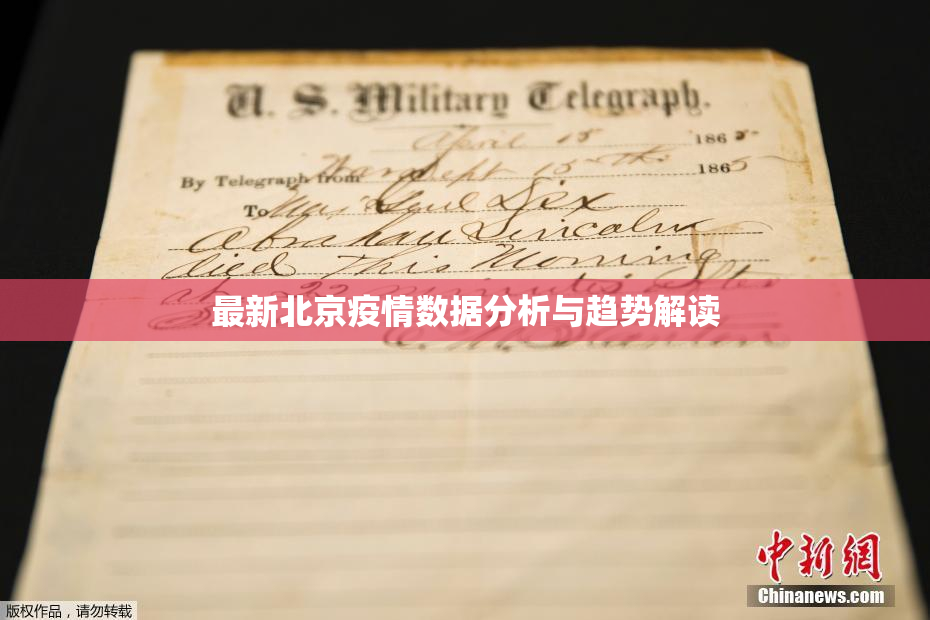 U. S. Military Telegraph.
April 15 1865
By Telegraph from War Dept 15th 1865
To Maj Genl Dix
Abraham Lincoln
died This Morning
at 22 minutes after
最新北京疫情数据分析与趋势解读
E. M. Stanton
中新网
Chinanews.com
版权作品，请勿转载